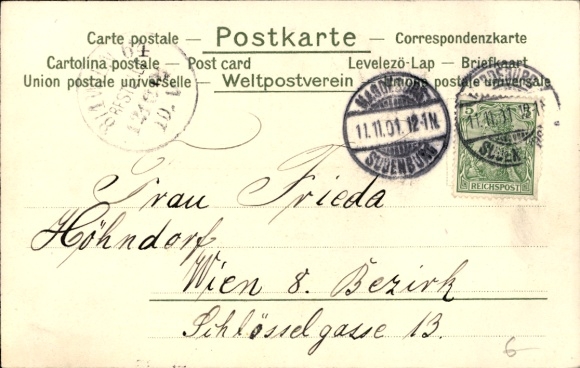 Carte postale — Postkarte — Correspondenzkarte
Cartolina postale — Post card Levelezö-Lap — Briefkaart
Union postale universelle — Weltpostverein — postale universale
MAGDEBURG
11.11.01. 12-1N.
SUDENBURG
5 5
REICHSPOST
Frau Frieda
Höhndorf
Wien 8. Bezirk
Schlösselgasse 13.
6